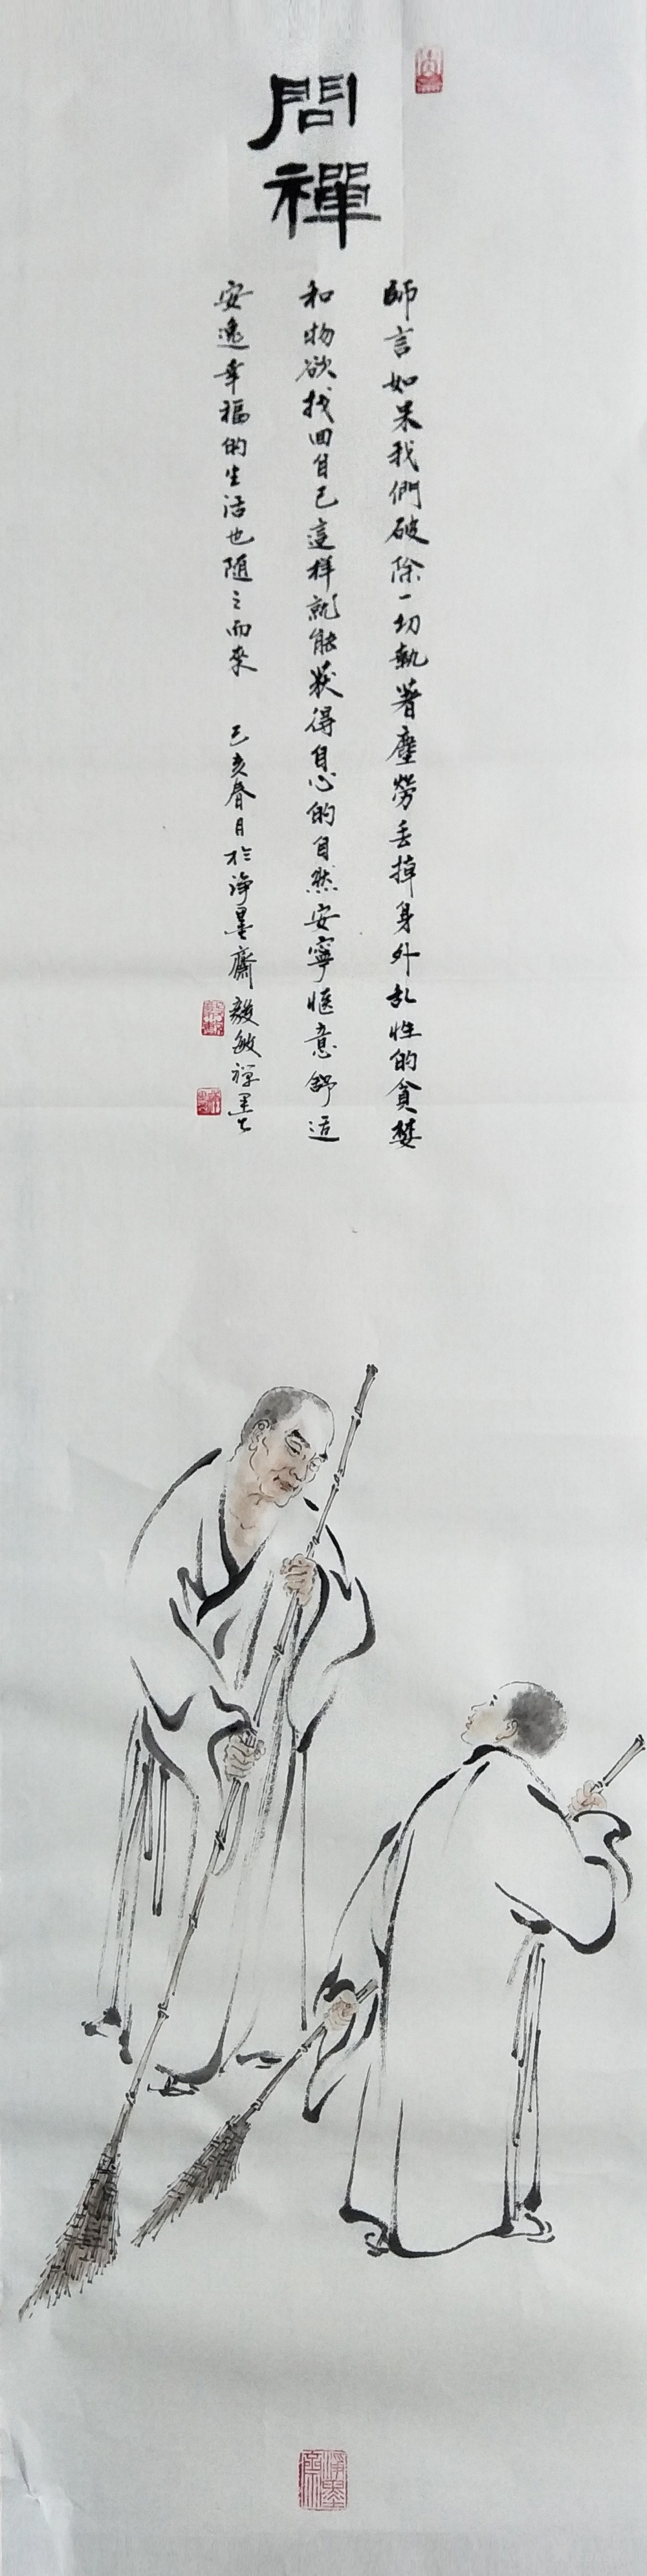 問禪
師言如果我們破除一切執著塵勞丢掉身外乱性的貪婪
和物欲找回自己這样就能获得自心的自然安寧惬意舒适
安逸幸福的生活也随之而來 己亥春月於淨墨齋毅敏禅墨
淨墨齋